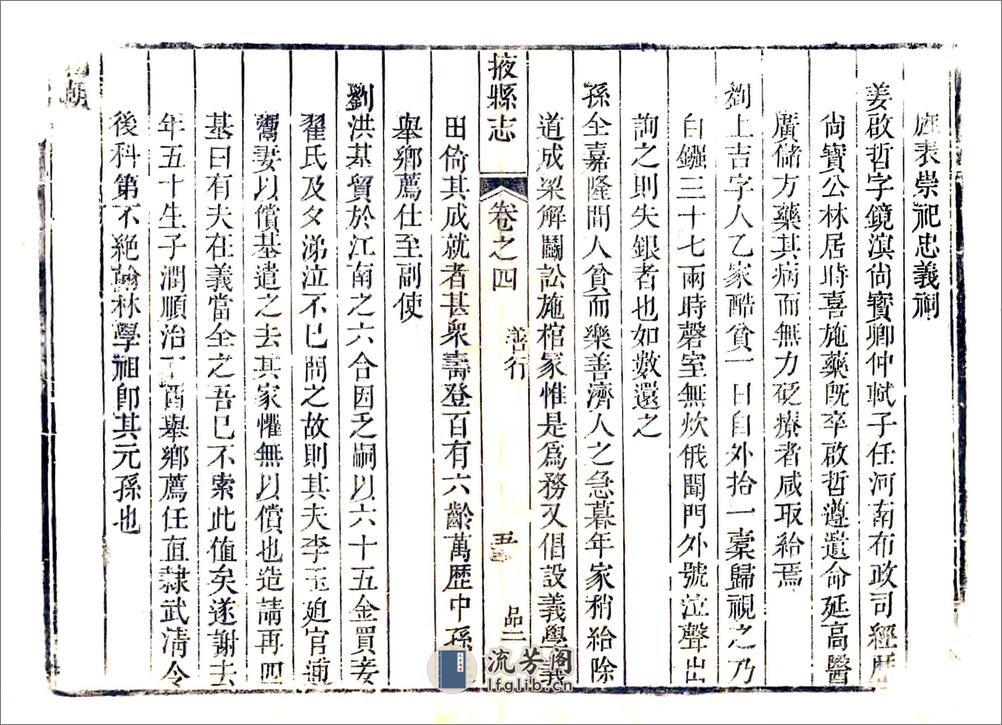 旌表崇祀忠義祠
姜啟哲字鏡滇尚寶卿仲軾子任河南布政司經歷
尚寶公林居時喜施藥旣卒啟哲遵遺命延高醫
廣儲方藥其病而無力砭療者咸取給焉
劉上吉字人乙家酷貧一日自外拾一橐歸視之乃
白鏹三十七兩時罄室無炊俄聞門外號泣聲出
詢之則失銀者也如數還之
孫全嘉隆間人貧而樂善濟人之急暮年家稍給除
道成梁解鬬訟施棺冢惟是爲務又倡設義學義
田倚其成就者甚衆壽登百有六齡萬歷中孫
舉鄉薦仕至副使
掖縣志
卷之四
善行
五
品二
劉洪基貿於江南之六合因乏嗣以六十五金買妾
翟氏及夕涕泣不已問之故則其夫李玉廹官逋
鬻妻以償基遣之去其家懼無以償也造請再四
基曰有夫在義當全之吾已不索此值矣遂謝去
年五十生子潤順治丁酉舉鄉薦任直隸武淸令
後科第不絕翰林學祖卽其元孫也
流芳阁
lfglib.cn